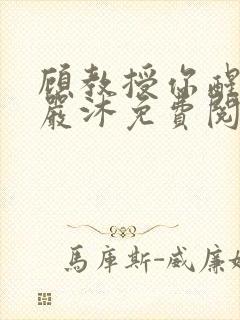 顾教授你醒
嚴沐免費閱
馬庫斯-威廉姆